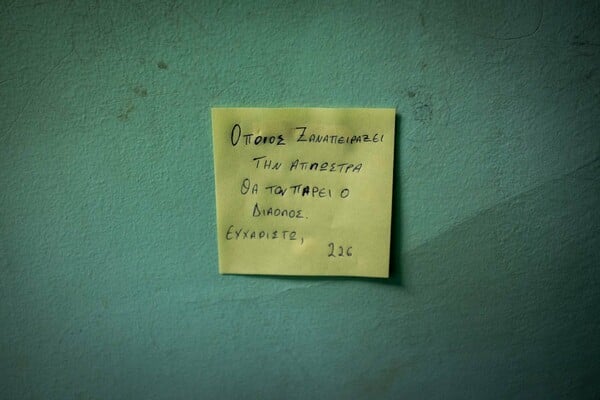 ΟΠΟΙΟΣ ΖΑΝΑΠΕΙΡΑΖΕΙ
ΤΗΝ ΑΠΛΩΣΤΡΑ
ΘΑ ΤΟΝ ΠΑΡΕΙ Ο
ΔΙΑΟΛΟΣ.
ΕΥΧΑΡΙΣΤΩ,
226